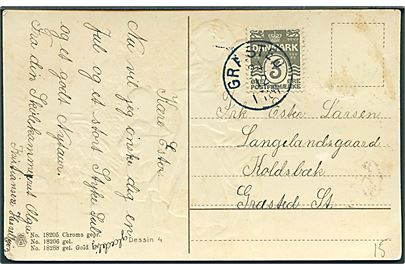 Kære Ester
Nu vil jeg ønske dig en glædelig
Jul og et stort Stykke Jule
og et godt Nytaar.
Fra din Skolekammerat Olga
Kristiansen
No. 18205 Chromo gepr.
No. 18206 gel.
No. 18288 gel. Gold
Dessin 4
DANMARK
3
POSTFRIMÆRKE
GRÆSTED
Frk Ester Larsen
Langelandsgaard
Holdsbæk
Græsted St.
15